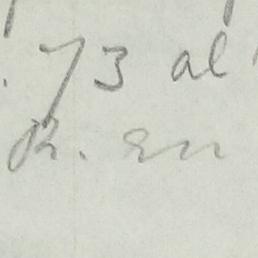 . 73 al
R. en